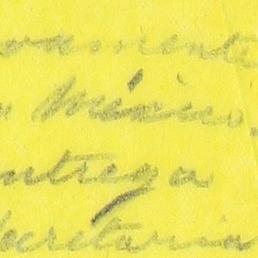 vamente
México.
ntrega
ecretaria